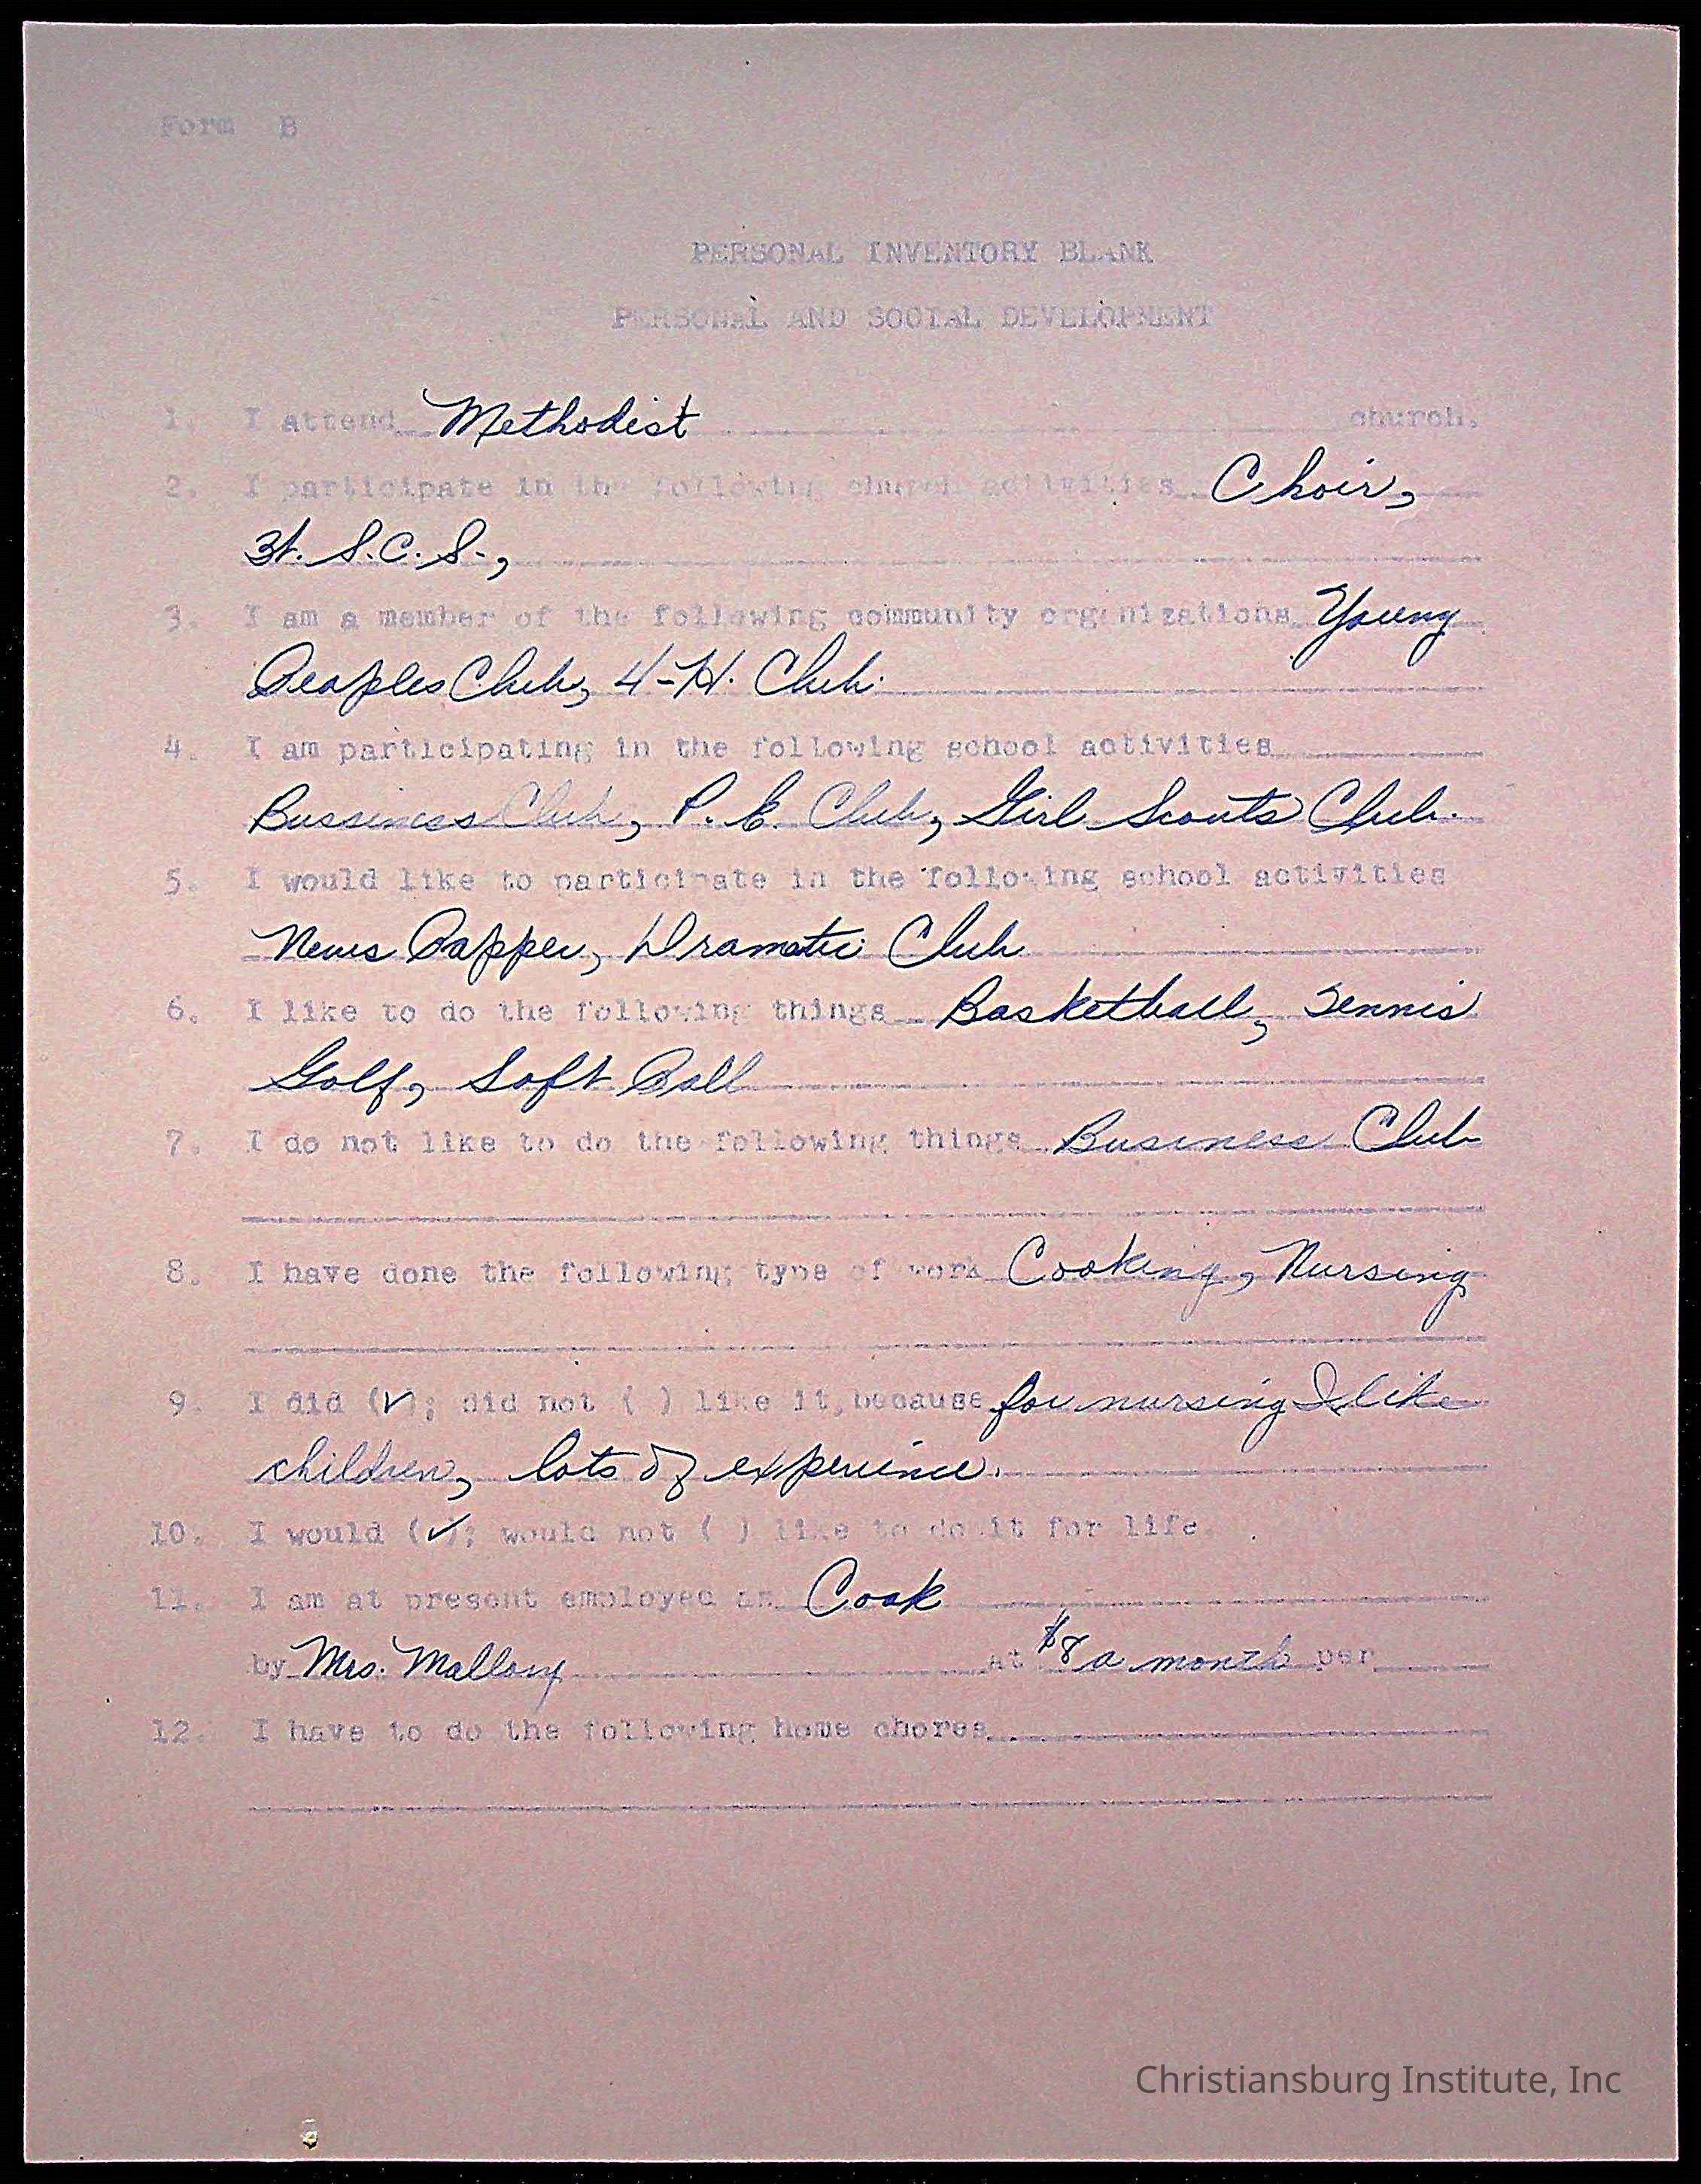 Form B
PERSONAL INVENTORY BLANK
PERSONAL AND SOCIAL DEVELOPMENT
1. I attend Methodist church.
2. I participate in the following church activities Choir,
S.C.S.,
3. I am a member of the following community organizations Young
Peoples Club, 4-H. Club.
4. I am participating in the following school activities
Bussiness Club, P. E. Club, Girl Scouts Club.
5. I would like to participate in the following school activities
News Papper, Dramatic Club
6. I like to do the following things Basketball, Tennis
Golf, Soft Ball
7. I do not like to do the following things Business Club
8. I have done the following type of work Cooking, Nursing
9. I did (✓); did not ( ) like it, because for nursing I like
children, lots of experience.
10. I would (✓); would not ( ) like to do it for life.
11. I am at present employed as Cook
by Mrs. Mallory at $8 a month per
12. I have to do the following home chores
Christiansburg Institute, Inc